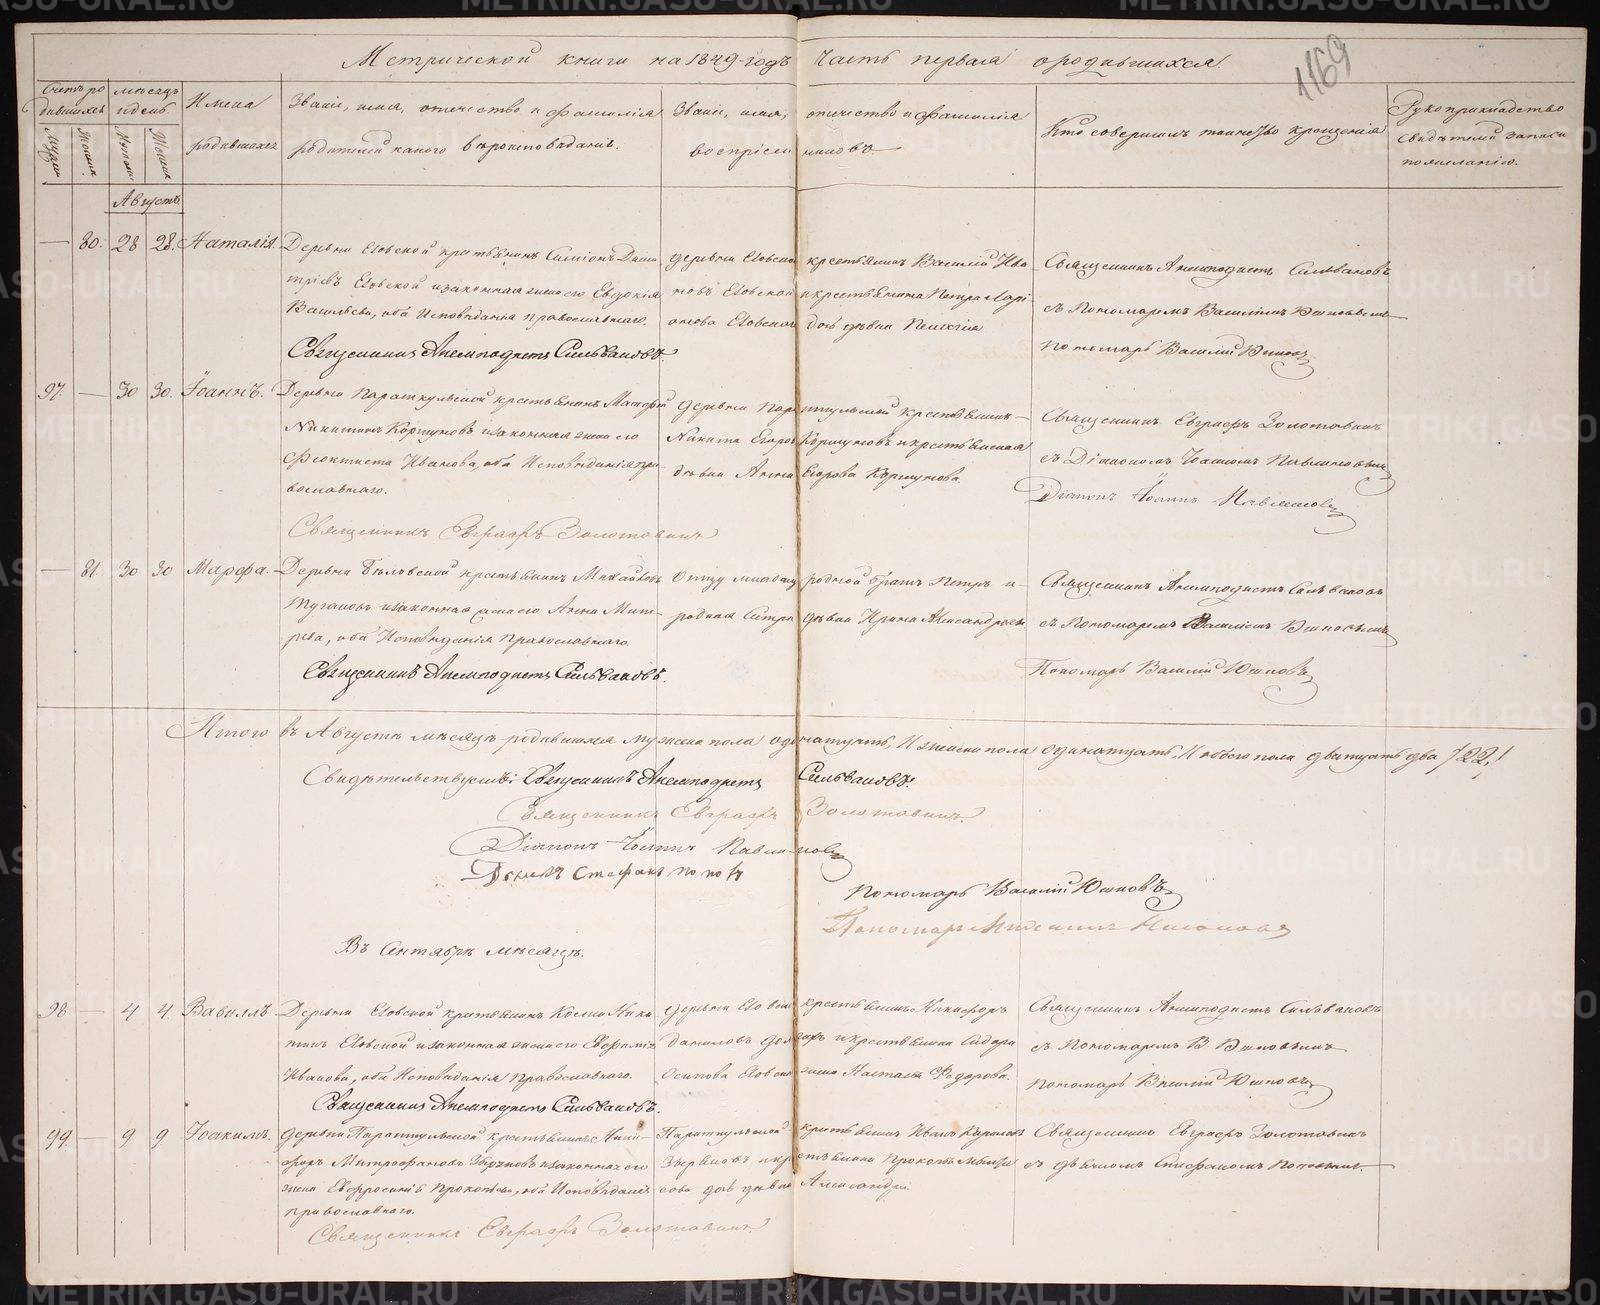 Метрической книги на 1849 годъ Часть первая о родившихся.
1169
Счетъ родившихся
Мужеска
Женска
Мѣсяцъ и день
Рожденія
Крещенія
Имена родившихся
Званіе, имя, отечество и фамилія родителей какого вѣроисповѣданія.
Званіе, имя, отечество и фамилія воспріемниковъ
Кто совершалъ таинство крещенія
Рукоприкладство свидѣтелей записи по желанію.
Августъ
— 80. 28 28. Наталія.
Деревни Еловской крестьянинъ Симіонъ Дми-
тріевъ Еловской и законная жена его Евдокія
Васильева, оба Исповѣданія православнаго.
Священникъ Анемподистъ Сильвановъ.
деревни Еловской крестьянинъ Василій Ива-
новъ Еловской и крестьянина Петра Лари-
онова Еловскаго дочь дѣвка Пелагія
Священникъ Анемподистъ Сильвановъ
съ Пономаремъ Василіемъ Юшковымъ
Пономарь Василій Юшковъ
97. — 30 30. Іоаннъ.
Деревни Параткульской крестьянинъ Матфей
Никитинъ Коршуновъ и законная жена его
Феоктиста Иванова, оба Исповѣданія пра-
вославнаго.
Священникъ Евграфъ Золотавинъ
деревни Параткульской крестьянинъ
Никита Егоровъ Коршуновъ и крестьянская
дѣвка Анна Егорова Коршунова.
Священникъ Евграфъ Золотавинъ
съ Діакономъ Іоанномъ Павлиновымъ
Діаконъ Іоаннъ Павлиновъ
— 81. 30 30 Марфа.
Деревни Бѣловской крестьянинъ
и законная жена его Анна Дмит-
ріева, оба Исповѣданія Православнаго.
Священникъ Анемподистъ Сильвановъ.
Отцу младенца родной братъ Петръ и
родная сестра дѣвка Ирина Александровы
Священникъ Анемподистъ Сильвановъ
съ Пономаремъ Василіемъ Юшковымъ
Пономарь Василій Юшковъ
Итого въ Августѣ мѣсяцѣ родившихся мужеска пола одинатцать, И женска пола одинатцать, И обоего пола двадцать два /22,/
Свидѣтельствуемъ: Священникъ Анемподистъ Сильвановъ.
Священникъ Евграфъ Золотавинъ.
Діаконъ Іоаннъ Павлиновъ
Стефанъ Поповъ
Пономарь Василій Юшковъ
Пономарь
Въ Сентябрѣ мѣсяцѣ.
98 — 4 4. Вавиллъ.
Деревни Еловской крестьянинъ Косма Ники-
тинъ Еловской и законная жена его Евфимія
Иванова, оба Исповѣданія православнаго.
Священникъ Анемподистъ Сильвановъ.
деревни Еловской крестьянинъ Никифоръ
Даниловъ и крестьянина Сидора
Осипова Еловскаго жена Настасья Федорова.
Священникъ Анемподистъ Сильвановъ
съ Пономаремъ В. Юшковымъ
Пономарь Василій Юшковъ
99. — 9 9. Іоакимъ.
деревни Параткульской крестьянинъ Ники-
форъ Митрофановъ и законная его
жена Евфросинія Прокопьева, оба Исповѣданія
православнаго.
Священникъ Евграфъ Золотавинъ
Параткульской крестьянинъ Иванъ
и крестьянина Прокопья
дочь дѣвка Александра.
Священникъ Евграфъ Золотавинъ
съ дьячкомъ Стефаномъ Поповымъ.